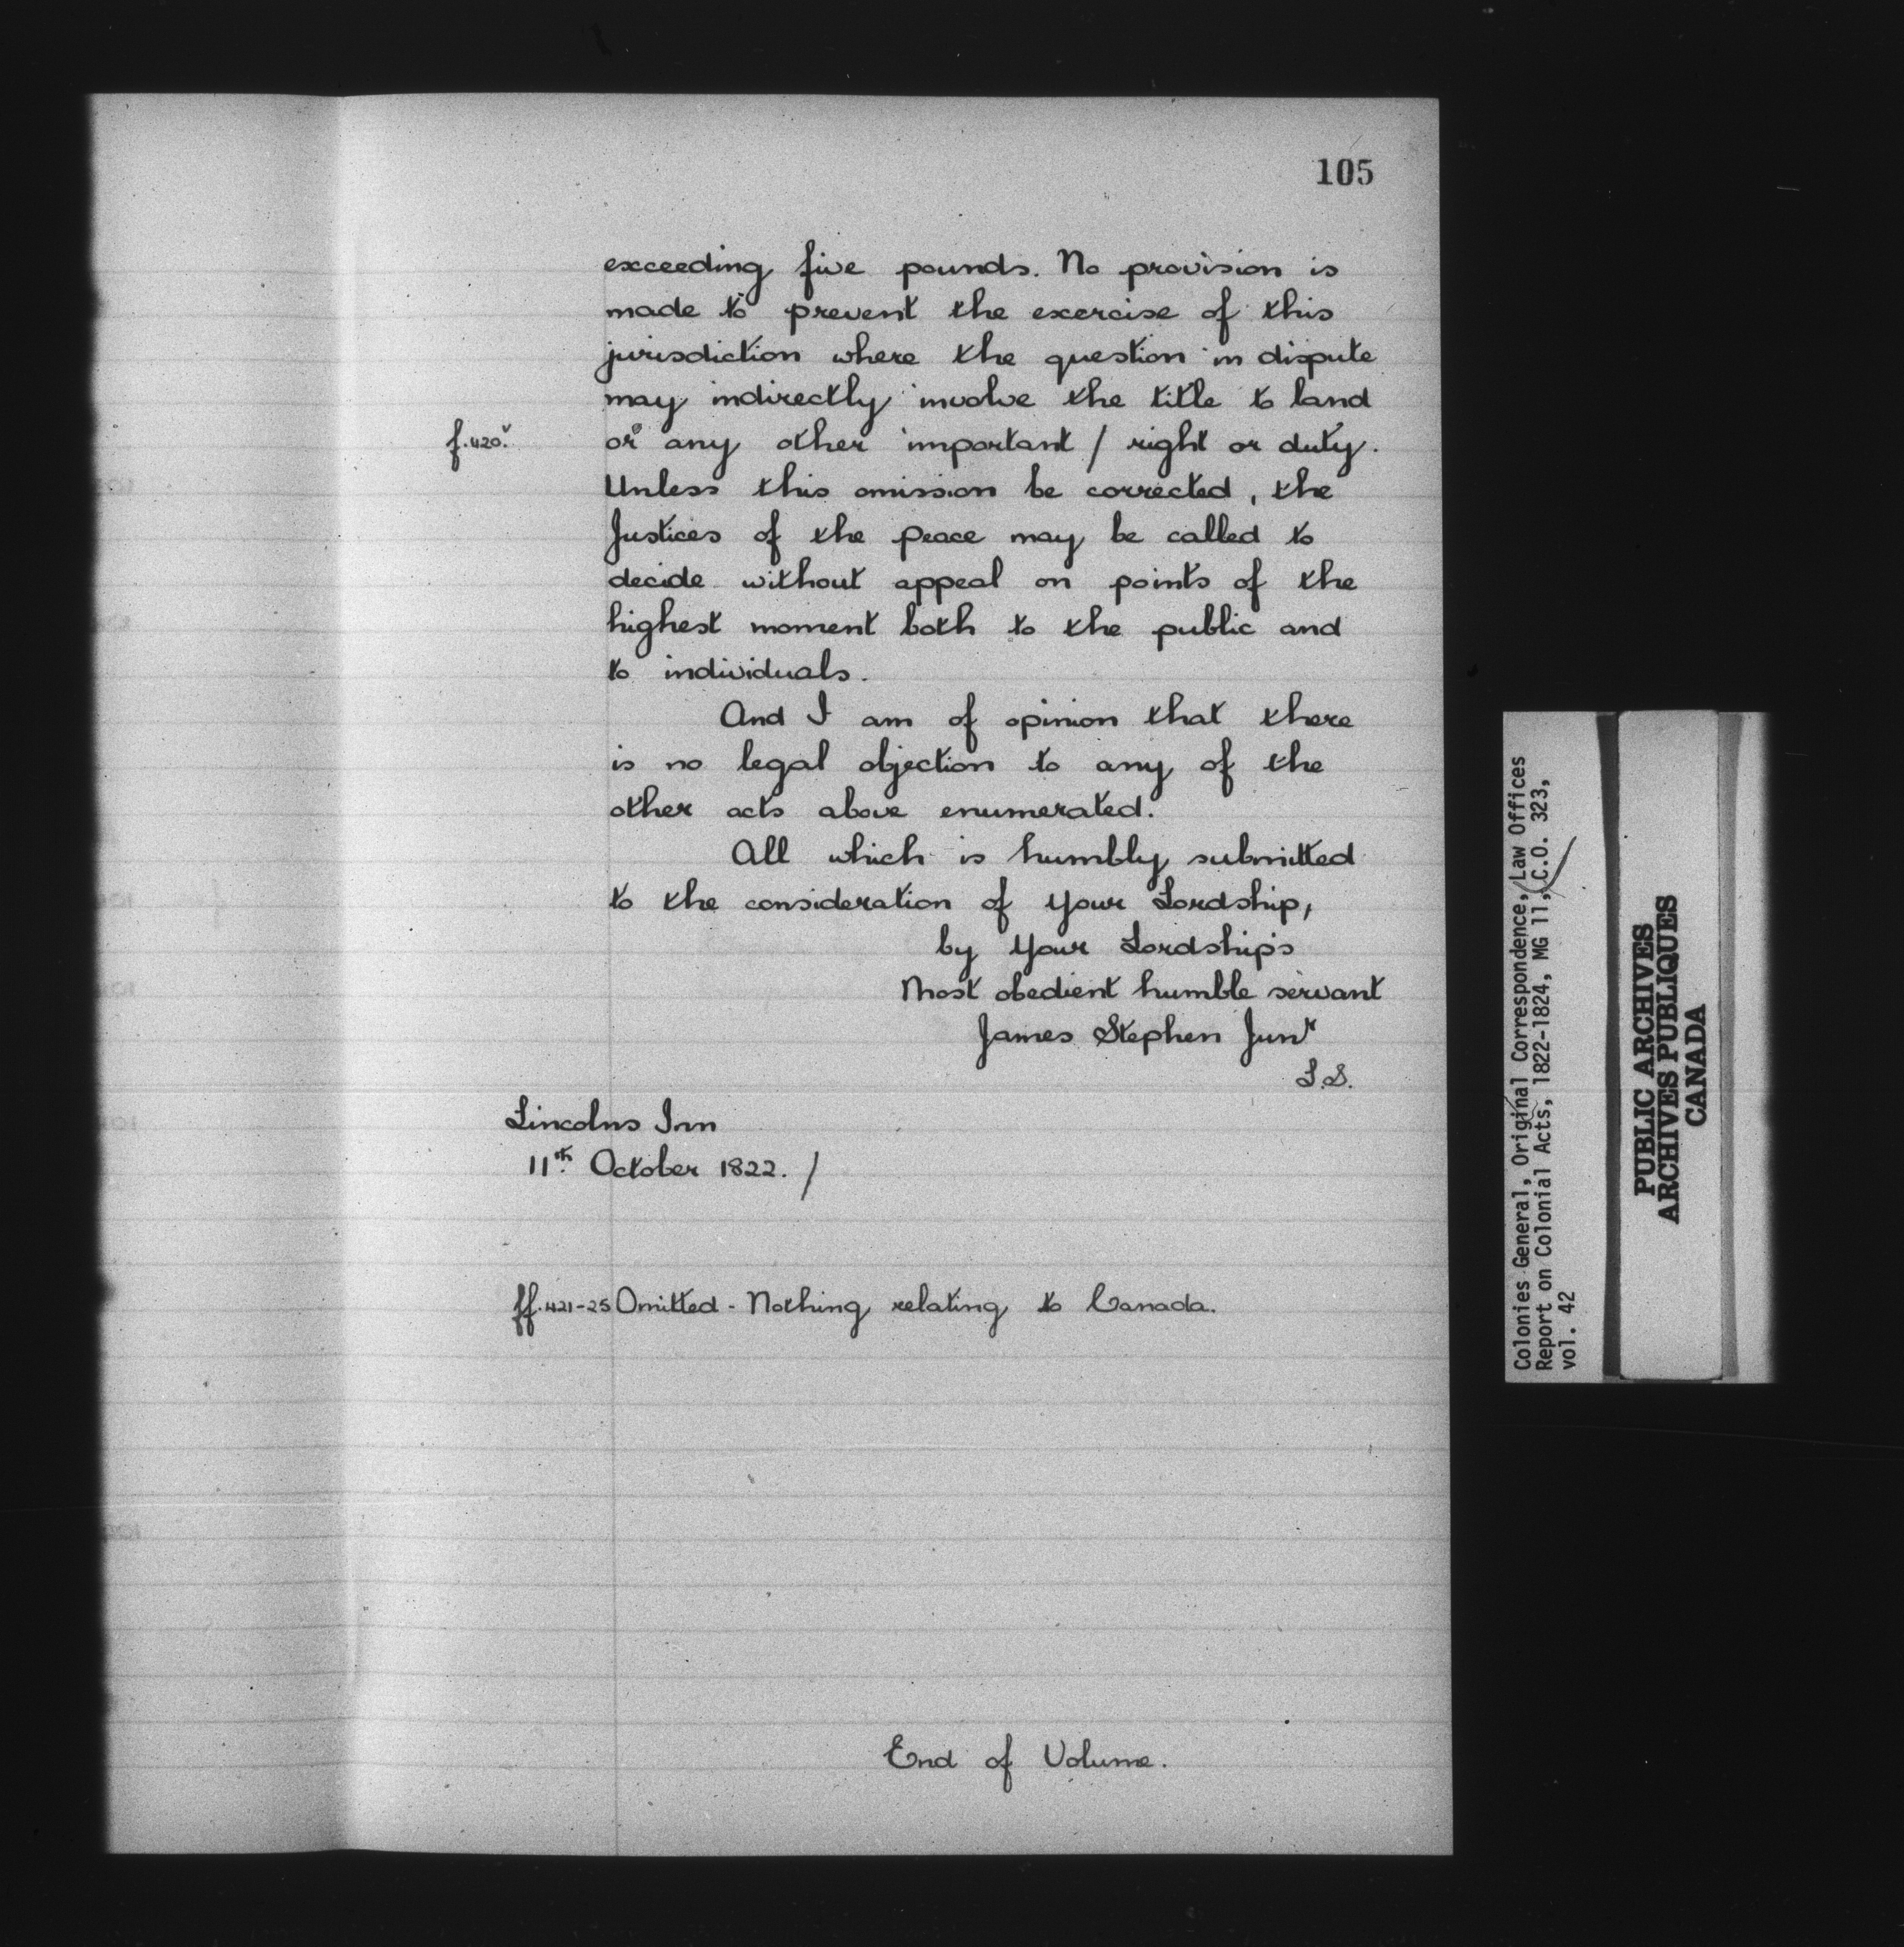 105
exceeding five pounds. No provision is
made to prevent the exercise of this
jurisdiction where the question in dispute
may indirectly involve the title to land
f.420.v or any other important / right or duty.
Unless this omission be corrected, the
Justices of the Peace may be called to
decide without appeal on points of the
highest moment both to the public and
to individuals.
And I am of opinion that there
is no legal objection to any of the
other acts above enumerated.
All which is humbly submitted
to the consideration of Your Lordship,
by Your Lordships
Most obedient humble servant
James Stephen Junr
L.S.
Lincolns Inn
11th October 1822. /
ff.421-25 Omitted - Nothing relating to Canada.
End of Volume.
Colonies General, Original Correspondence, Law Offices
Report on Colonial Acts, 1822-1824, MG 11, C.O. 323,
vol. 42
PUBLIC ARCHIVES
ARCHIVES PUBLIQUES
CANADA